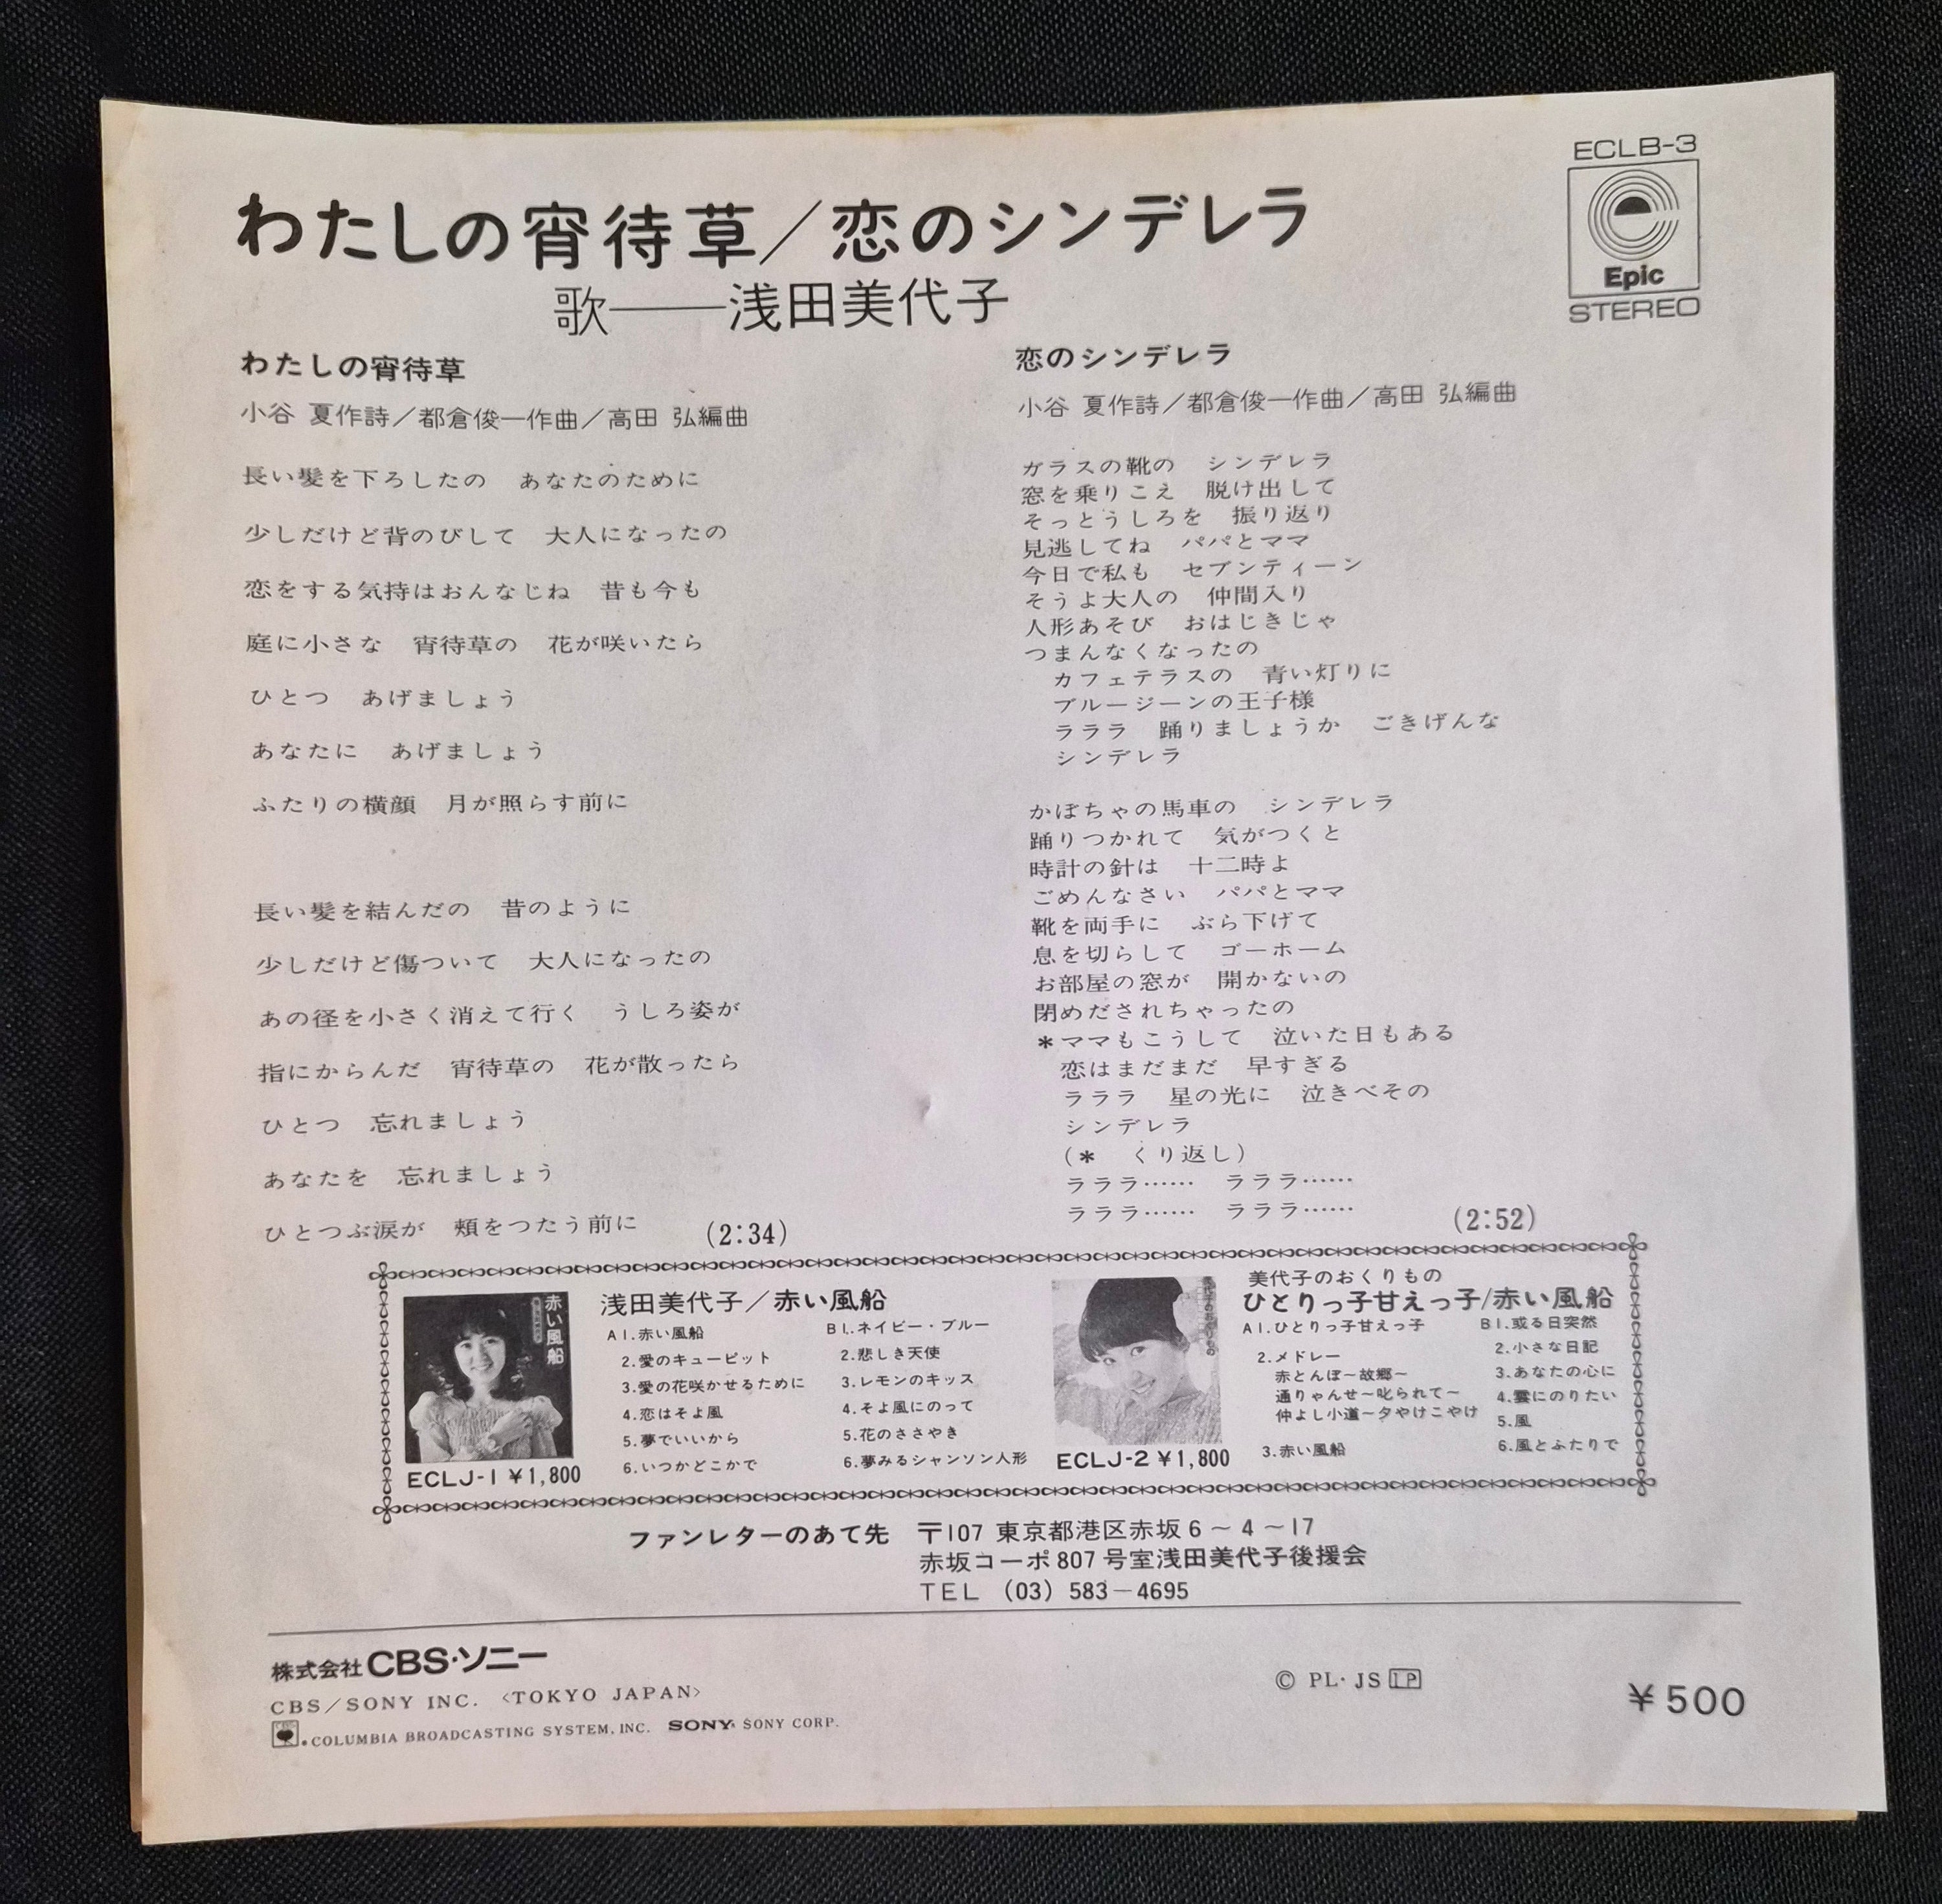 ECLB-3
Epic
STEREO
わたしの宵待草／恋のシンデレラ
歌——浅田美代子
わたしの宵待草
小谷 夏作詩／都倉俊一作曲／高田 弘編曲
長い髪を下ろしたの　あなたのために
少しだけど背のびして　大人になったの
恋をする気持はおんなじね　昔も今も
庭に小さな　宵待草の　花が咲いたら
ひとつ　あげましょう
あなたに　あげましょう
ふたりの横顔　月が照らす前に
長い髪を結んだの　昔のように
少しだけど傷ついて　大人になったの
あの径を小さく消えて行く　うしろ姿が
指にからんだ　宵待草の　花が散ったら
ひとつ　忘れましょう
あなたを　忘れましょう
ひとつぶ涙が　頬をつたう前に
(2:34)
恋のシンデレラ
小谷 夏作詩／都倉俊一作曲／高田 弘編曲
ガラスの靴の　シンデレラ
窓を乗りこえ　脱け出して
そっとうしろを　振り返り
見逃してね　パパとママ
今日で私も　セブンティーン
そうよ大人の　仲間入り
人形あそび　おはじきじゃ
つまんなくなったの
カフェテラスの　青い灯りに
ブルージーンの王子様
ラララ　踊りましょうか　ごきげんな
シンデレラ
かぼちゃの馬車の　シンデレラ
踊りつかれて　気がつくと
時計の針は　十二時よ
ごめんなさい　パパとママ
靴を両手に　ぶら下げて
息を切らして　ゴーホーム
お部屋の窓が　開かないの
閉めだされちゃったの
＊ママもこうして　泣いた日もある
恋はまだまだ　早すぎる
ラララ　星の光に　泣きべその
シンデレラ
(＊　くり返し)
ラララ……　ラララ……
ラララ……　ラララ……
(2:52)
赤い風船
ECLJ-1 ¥1,800
浅田美代子／赤い風船
A1.赤い風船
2.愛のキューピット
3.愛の花咲かせるために
4.恋はそよ風
5.夢でいいから
6.いつかどこかで
B1.ネイビー・ブルー
2.悲しき天使
3.レモンのキッス
4.そよ風にのって
5.花のささやき
6.夢みるシャンソン人形
ECLJ-2 ¥1,800
美代子のおくりもの
ひとりっ子甘えっ子/赤い風船
A1.ひとりっ子甘えっ子
2.メドレー
赤とんぼ〜故郷〜
通りゃんせ〜叱られて〜
仲よし小道〜夕やけこやけ
3.赤い風船
B1.或る日突然
2.小さな日記
3.あなたの心に
4.雲にのりたい
5.風
6.風とふたりで
ファンレターのあて先　〒107 東京都港区赤坂6〜4〜17
赤坂コーポ807号室浅田美代子後援会
TEL (03) 583－4695
株式会社CBS・ソニー
CBS／SONY INC. 〈TOKYO JAPAN〉
COLUMBIA BROADCASTING SYSTEM, INC. SONY SONY CORP.
© PL・JS 1P
¥500